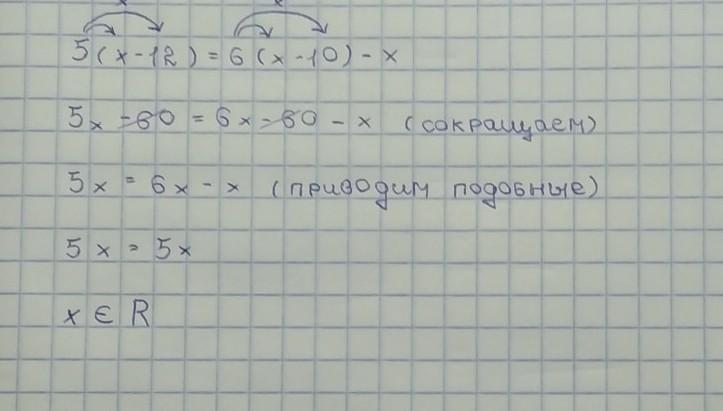 5(x-12) = 6(x-10) - x
5x -60 = 6x -60 - x (сокращаем)
5x = 6x - x (приводим подобные)
5x = 5x
x ∈ R